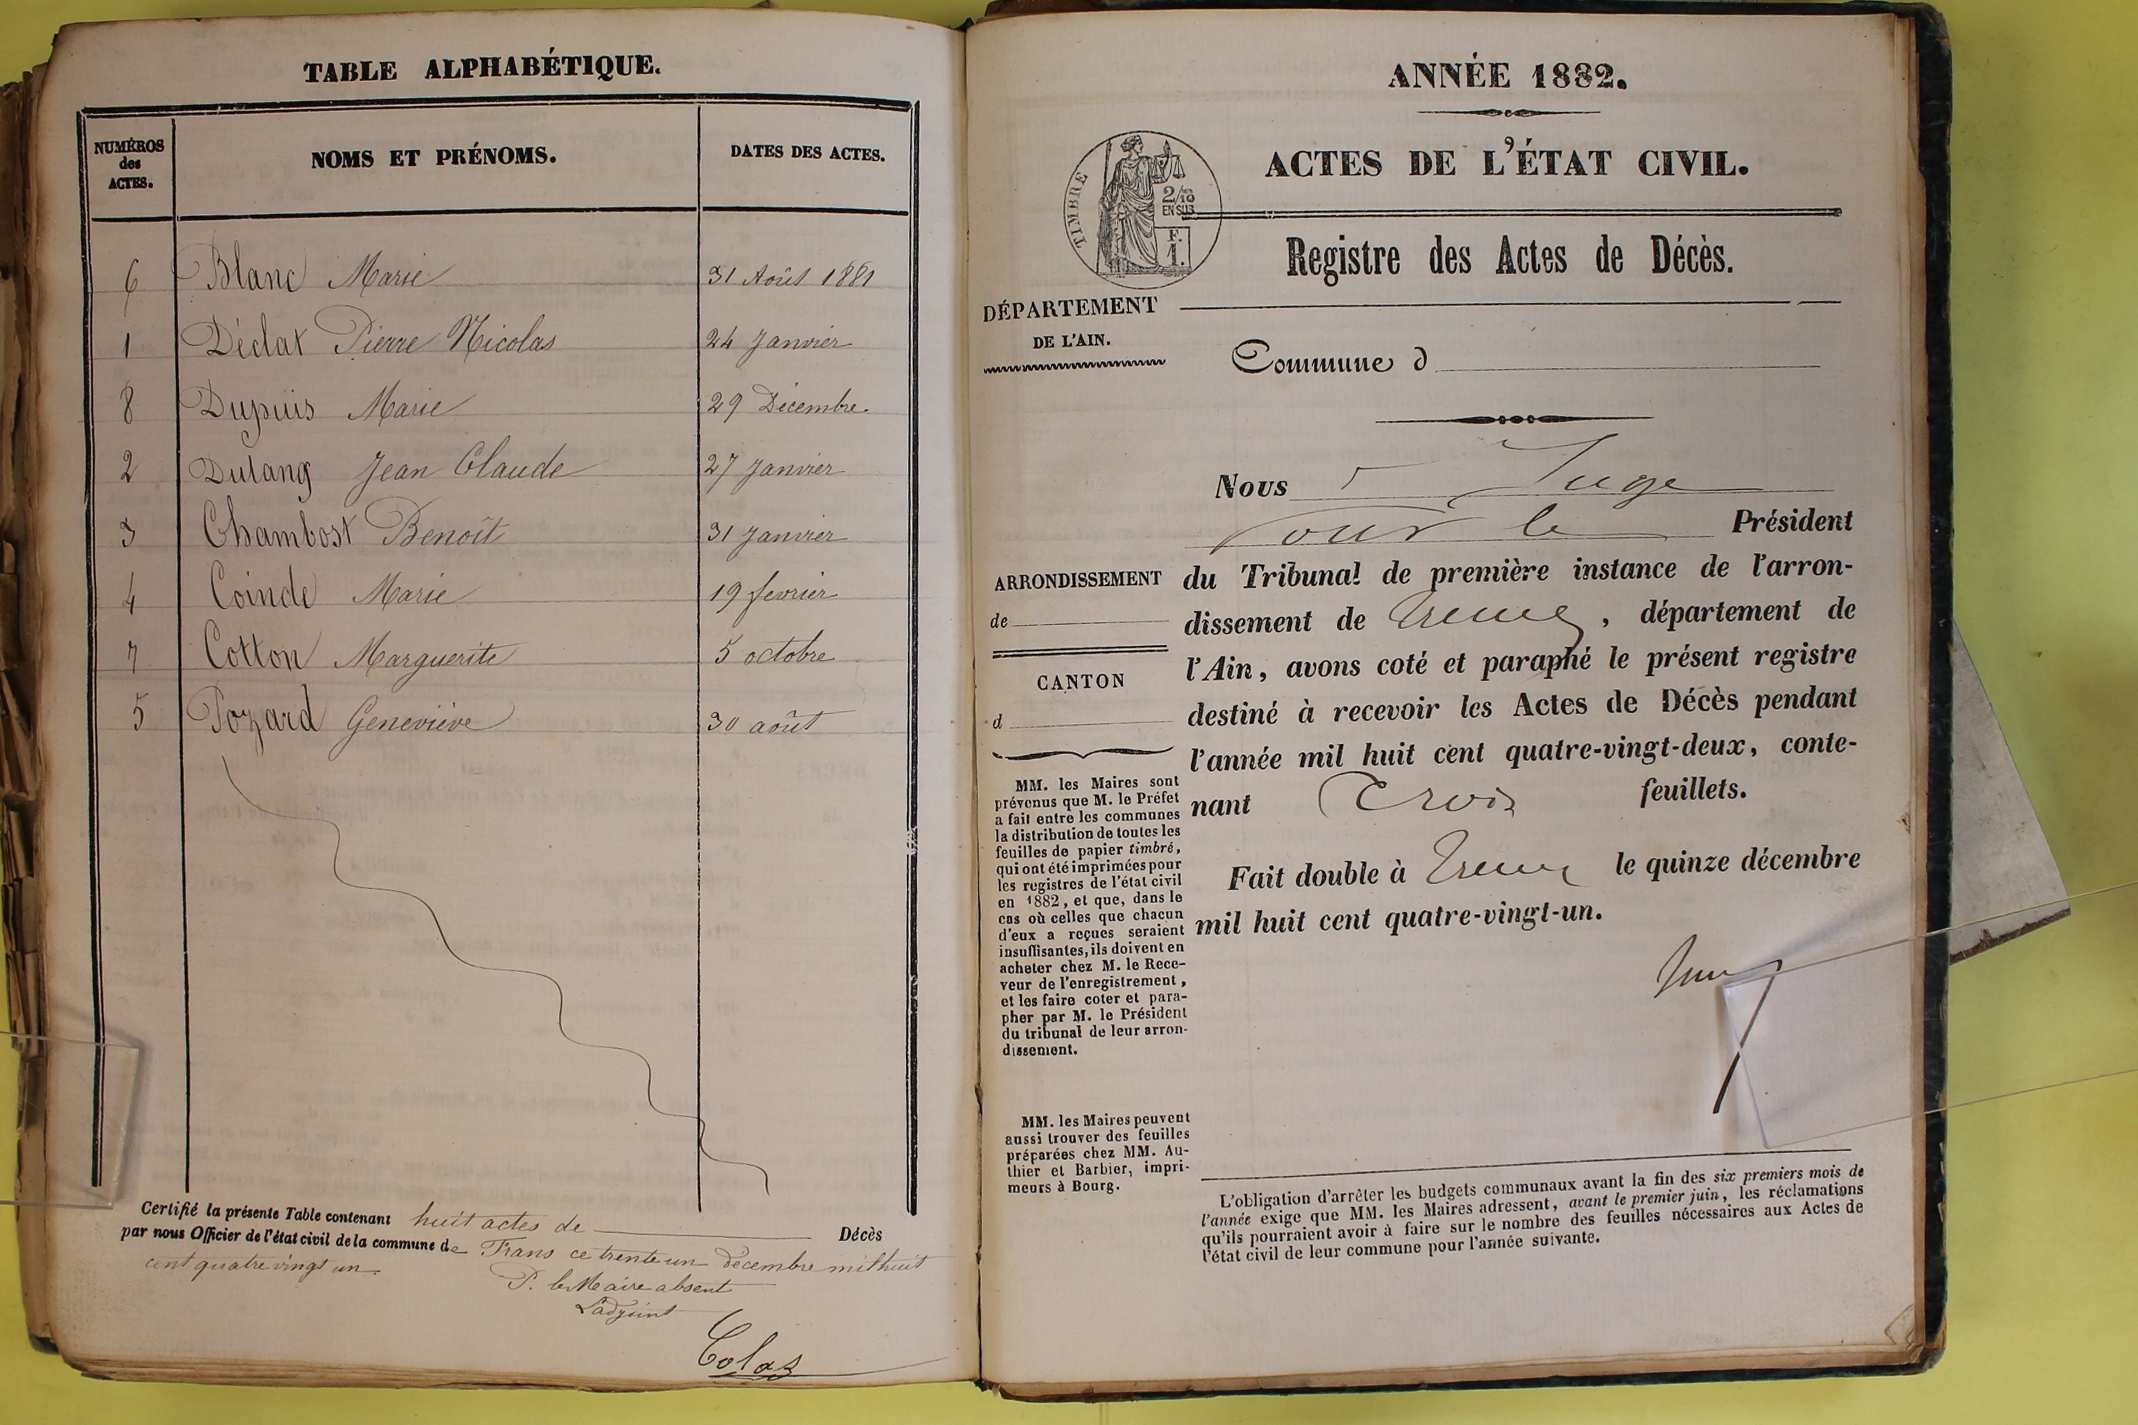 TABLE ALPHABÉTIQUE.
NUMÉROS
des
ACTES.
NOMS ET PRÉNOMS.
DATES DES ACTES.
6 Blanc Marie 31 Août 1881
1 Déclat Pierre Nicolas 24 Janvier
8 Dupuis Marie 29 Décembre
2 Dutang Jean Claude 27 Janvier
3 Chambost Benoît 31 Janvier
4 Coinde Marie 19 fevrier
7 Cotton Marguerite 5 octobre
5 Pozard Geneviève 30 août
Certifié la présente Table contenant huit actes de Décès
par nous Officier de l'état civil de la commune de Frans ce trente un décembre mil huit
cent quatre vingt un.
P. le Maire absent
L'adjoint
Colas
ANNÉE 1882.
ACTES DE L'ÉTAT CIVIL.
TIMBRE
2/10
EN SUS
F.
1.
Registre des Actes de Décès.
DÉPARTEMENT
DE L'AIN.
Commune d
Nous Juge
Pour le Président
du Tribunal de première instance de l'arron-
dissement de Trevoux, département de
l'Ain, avons coté et paraphé le présent registre
destiné à recevoir les Actes de Décès pendant
l'année mil huit cent quatre-vingt-deux, conte-
nant Trois feuillets.
Fait double à Trevoux le quinze décembre
mil huit cent quatre-vingt-un.
ARRONDISSEMENT
de
CANTON
d
MM. les Maires sont
prévenus que M. le Préfet
a fait entre les communes
la distribution de toutes les
feuilles de papier timbré,
qui ont été imprimées pour
les registres de l'état civil
en 1882, et que, dans le
cas où celles que chacun
d'eux a reçues seraient
insuffisantes, ils doivent en
acheter chez M. le Rece-
veur de l'enregistrement,
et les faire coter et para-
pher par M. le Président
du tribunal de leur arron-
dissement.
MM. les Maires peuvent
aussi trouver des feuilles
préparées chez MM. Au-
thier et Barbier, impri-
meurs à Bourg.
L'obligation d'arrêter les budgets communaux avant la fin des six premiers mois de
l'année exige que MM. les Maires adressent, avant le premier juin, les réclamations
qu'ils pourraient avoir à faire sur le nombre des feuilles nécessaires aux Actes de
l'état civil de leur commune pour l'année suivante.